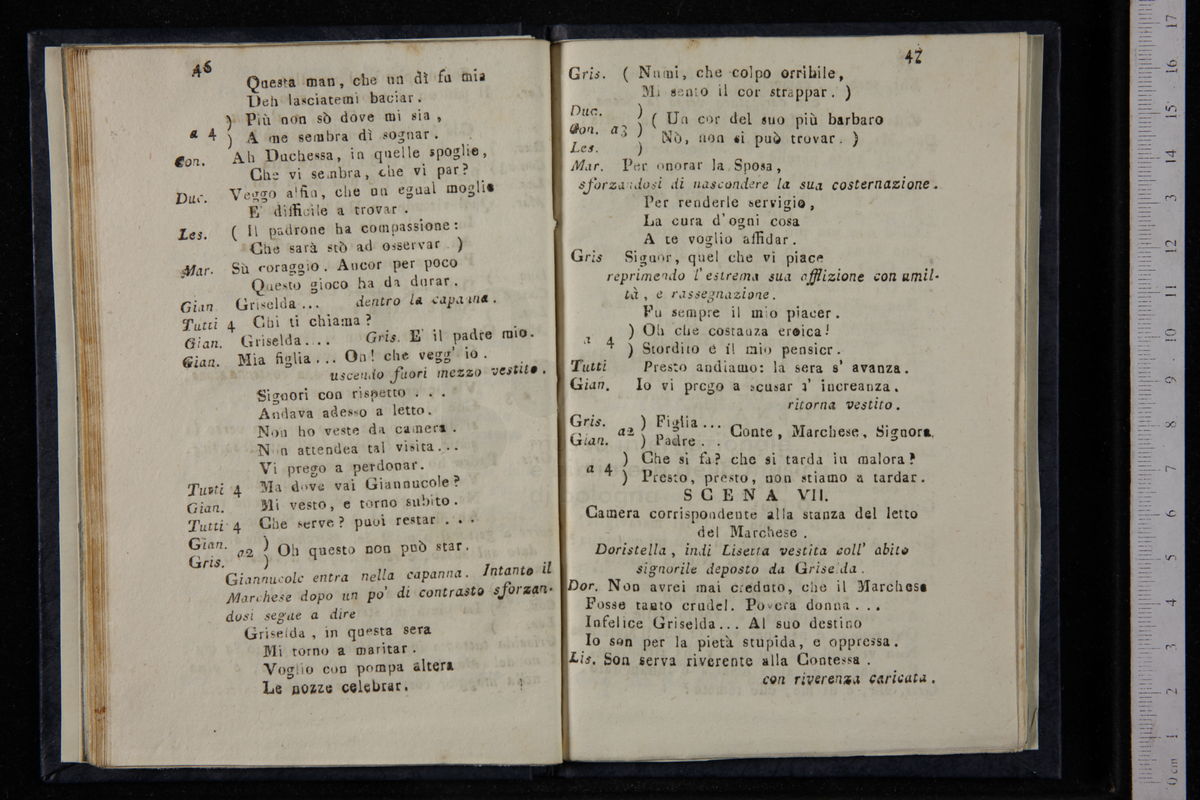 46
Questa man, che un dì fu mia
Deh lasciatemi baciar.
a 4 ) Più non sò dove mi sia,
) A me sembra dì sognar.
Con. Ah Duchessa, in quelle spoglie,
Che vi sembra, che vi par?
Duc. Veggo alfin, che un egual moglie
E' difficile a trovar.
Les. ( Il padrone ha compassione:
Che sarà stò ad osservar. )
Mar. Sù coraggio. Ancor per poco
Questo gioco ha da durar.
Gian Griselda... dentro la capanna.
Tutti 4 Chi ti chiama?
Gian. Griselda.... Gris. E' il padre mio.
Gian. Mia figlia... Oh! che vegg' io.
uscendo fuori mezzo vestito.
Signori con rispetto...
Andava adesso a letto.
Non ho veste da camera.
Non attendea tal visita...
Vi prego a perdonar.
Tutti 4 Ma dove vai Giannucole?
Gian. Mi vesto, e torno subito.
Tutti 4 Che serve? puoi restar...
Gian. )
a2 Oh questo non può star.
Gris. )
Giannucole entra nella capanna. Intanto il
Marchese dopo un po' di contrasto sforzan-
dosi segue a dire
Griselda, in questa sera
Mi torno a maritar.
Voglio con pompa altera
Le nozze celebrar.
47
Gris. ( Numi, che colpo orribile,
Mi sento il cor strappar. )
Duc. )
Con. a3 ) ( Un cor del suo più barbaro
Les. ) Nò, non si può trovar. )
Mar. Per onorar la Sposa,
sforzandosi di nascondere la sua costernazione.
Per renderle servigio,
La cura d'ogni cosa
A te voglio affidar.
Gris Signor, quel che vi piace
reprimendo l'estrema sua afflizione con umil-
tà, e rassegnazione.
Fu sempre il mio piacer.
a 4 ) Oh che costanza eroica!
) Stordito é il mio pensier.
Tutti Presto andiamo: la sera s' avanza.
Gian. Io vi prego a scusar l' increanza.
ritorna vestito.
Gris. ) Figlia...
a2 Conte, Marchese, Signora.
Gian. ) Padre..
a 4 ) Che si fa? che si tarda in malora?
) Presto, presto, non stiamo a tardar.
SCENA VII.
Camera corrispondente alla stanza del letto
del Marchese.
Doristella, indi Lisetta vestita coll' abito
signorile deposto da Griselda.
Dor. Non avrei mai creduto, che il Marchese
Fosse tanto crudel. Povera donna...
Infelice Griselda... Al suo destino
Io son per la pietà stupida, e oppressa.
Lis. Son serva riverente alla Contessa.
con riverenza caricata.
0 cm 1 2 3 4 5 6 7 8 9 10 11 12 13 14 15 16 17